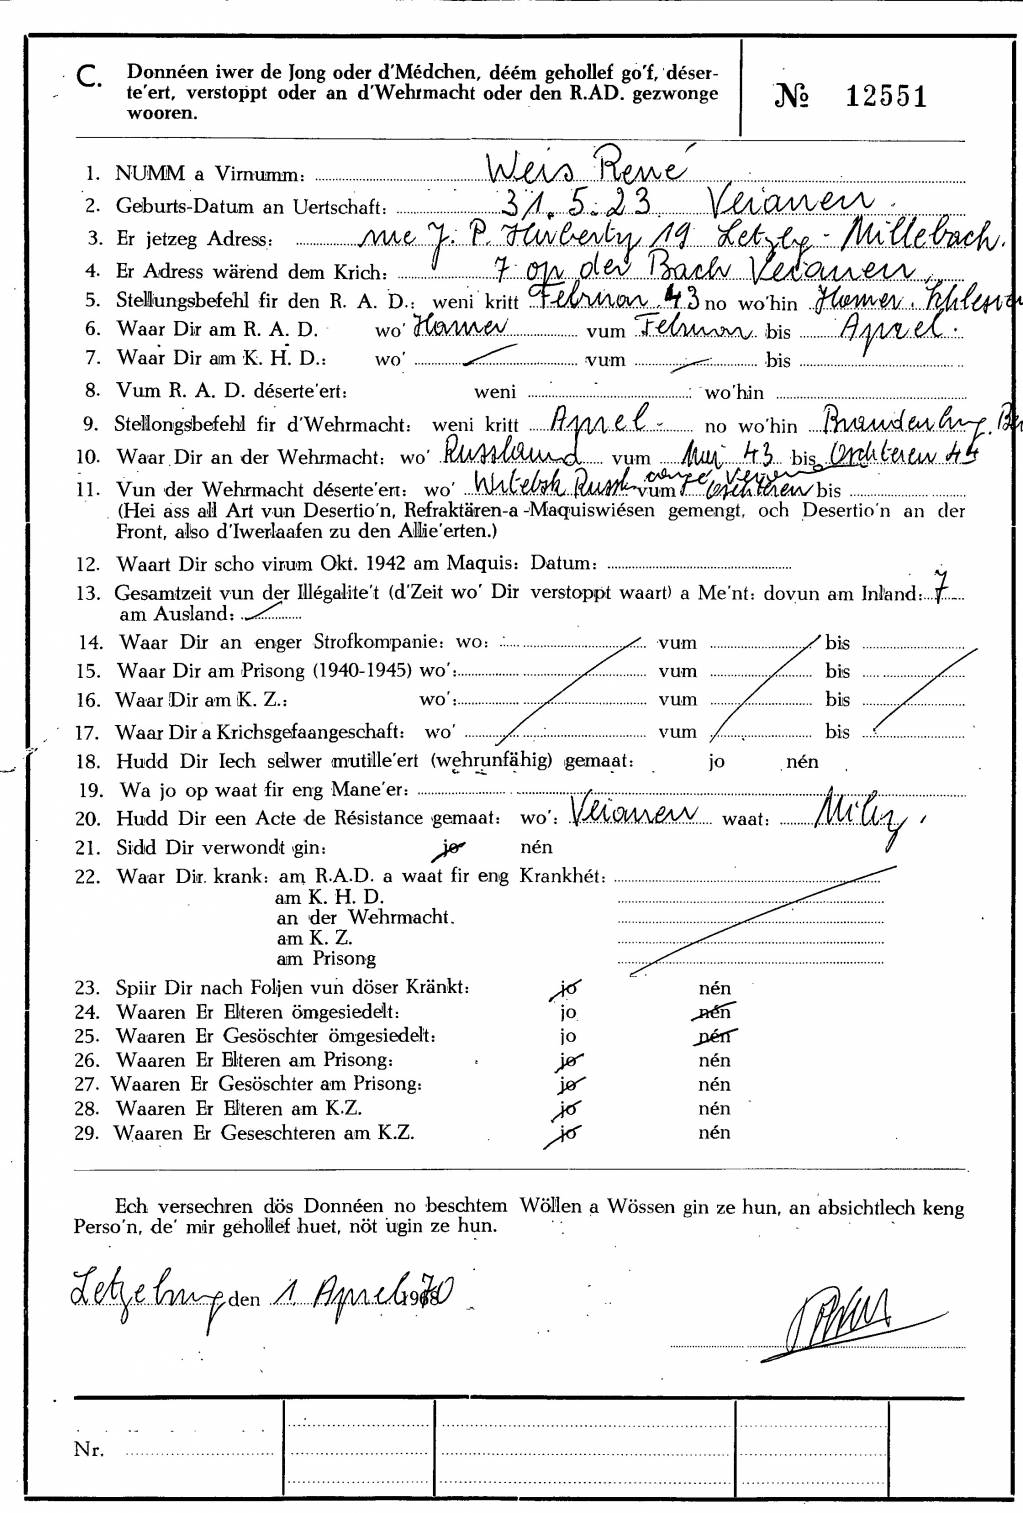 C. Donnéen iwer de Jong oder d'Médchen, déém gehollef go'f, déser-
te'ert, verstoppt oder an d'Wehrmacht oder den R.AD. gezwonge
wooren.
№ 12551
1. NUMM a Virnumm: Weis René
2. Geburts-Datum an Uertschaft: 31.5.23 Veianen.
3. Er jetzeg Adress: rue J. P. Huberty 19 Letzbg - Millebach.
4. Er Adress wärend dem Krich: 7 op der Bach Veianen
5. Stellungsbefehl fir den R. A. D.: weni kritt Februar 43 no wo'hin
6. Waar Dir am R. A. D. wo' vum Februar bis Aprel.
7. Waar Dir am K. H. D.: wo' vum bis
8. Vum R. A. D. déserte'ert: weni wo'hin
9. Stellongsbefehl fir d'Wehrmacht: weni kritt Aprel - no wo'hin Brandenburg.
10. Waar Dir an der Wehrmacht: wo' Russland vum Mai 43 bis Oschteren 44
11. Vun der Wehrmacht déserte'ert: wo' Witebsk Russl. vum Oschteren bis
(Hei ass all Art vun Desertio'n, Refraktären-a -Maquiswiésen gemengt, och Desertio'n an der
Front, also d'Iwerlaafen zu den Allie'erten.)
12. Waart Dir scho virum Okt. 1942 am Maquis: Datum:
13. Gesamtzeit vun der Illégalite't (d'Zeit wo' Dir verstoppt waart) a Me'nt: dovun am Inland: 7
am Ausland:
14. Waar Dir an enger Strofkompanie: wo: vum bis
15. Waar Dir am Prisong (1940-1945) wo': vum bis
16. Waar Dir am K. Z.: wo': vum bis
17. Waar Dir a Krichsgefaangeschaft: wo' vum bis
18. Hudd Dir Iech selwer mutille'ert (wehrunfähig) gemaat: jo nén
19. Wa jo op waat fir eng Mane'er:
20. Hudd Dir een Acte de Résistance gemaat: wo': Veianen waat: Miliz
21. Sidd Dir verwondt gin: jo nén
22. Waar Dir krank: am R.A.D. a waat fir eng Krankhét:
am K. H. D.
an der Wehrmacht.
am K. Z.
am Prisong
23. Spiir Dir nach Foljen vun döser Kränkt: jo nén
24. Waaren Er Elteren ömgesiedelt: jo nén
25. Waaren Er Gesöschter ömgesiedelt: jo nén
26. Waaren Er Elteren am Prisong: jo nén
27. Waaren Er Gesöschter am Prisong: jo nén
28. Waaren Er Elteren am K.Z. jo nén
29. Waaren Er Geseschteren am K.Z. jo nén
Ech versechren dös Donnéen no beschtem Wöllen a Wössen gin ze hun, an absichtlech keng
Perso'n, de' mir gehollef huet, nöt ugin ze hun.
Letzeburg den 1. Aprel 1970
Nr.